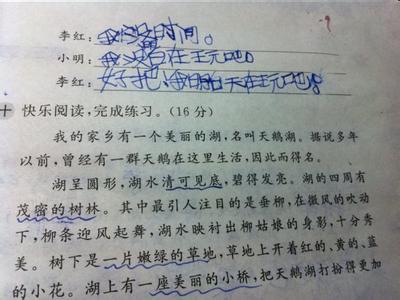 -9
李红：我没时间。
小明：我在玩吧。
李红：好把，我明天在玩吧。
十 快乐阅读，完成练习。(16 分)
我的家乡有一个美丽的湖，名叫天鹅湖。据说多年
以前，曾经有一群天鹅在这里生活，因此而得名。
湖呈圆形，湖水清可见底，碧得发亮。湖的四周有
茂密的树林。其中最引人注目的是垂柳，在微风的吹动
下，柳条迎风起舞，湖水映衬出柳姑娘的身影，十分秀
美。树下是一片嫩绿的草地，草地上开着红的、黄的、蓝
的小花。湖上有一座美丽的小桥，把天鹅湖打扮得更加